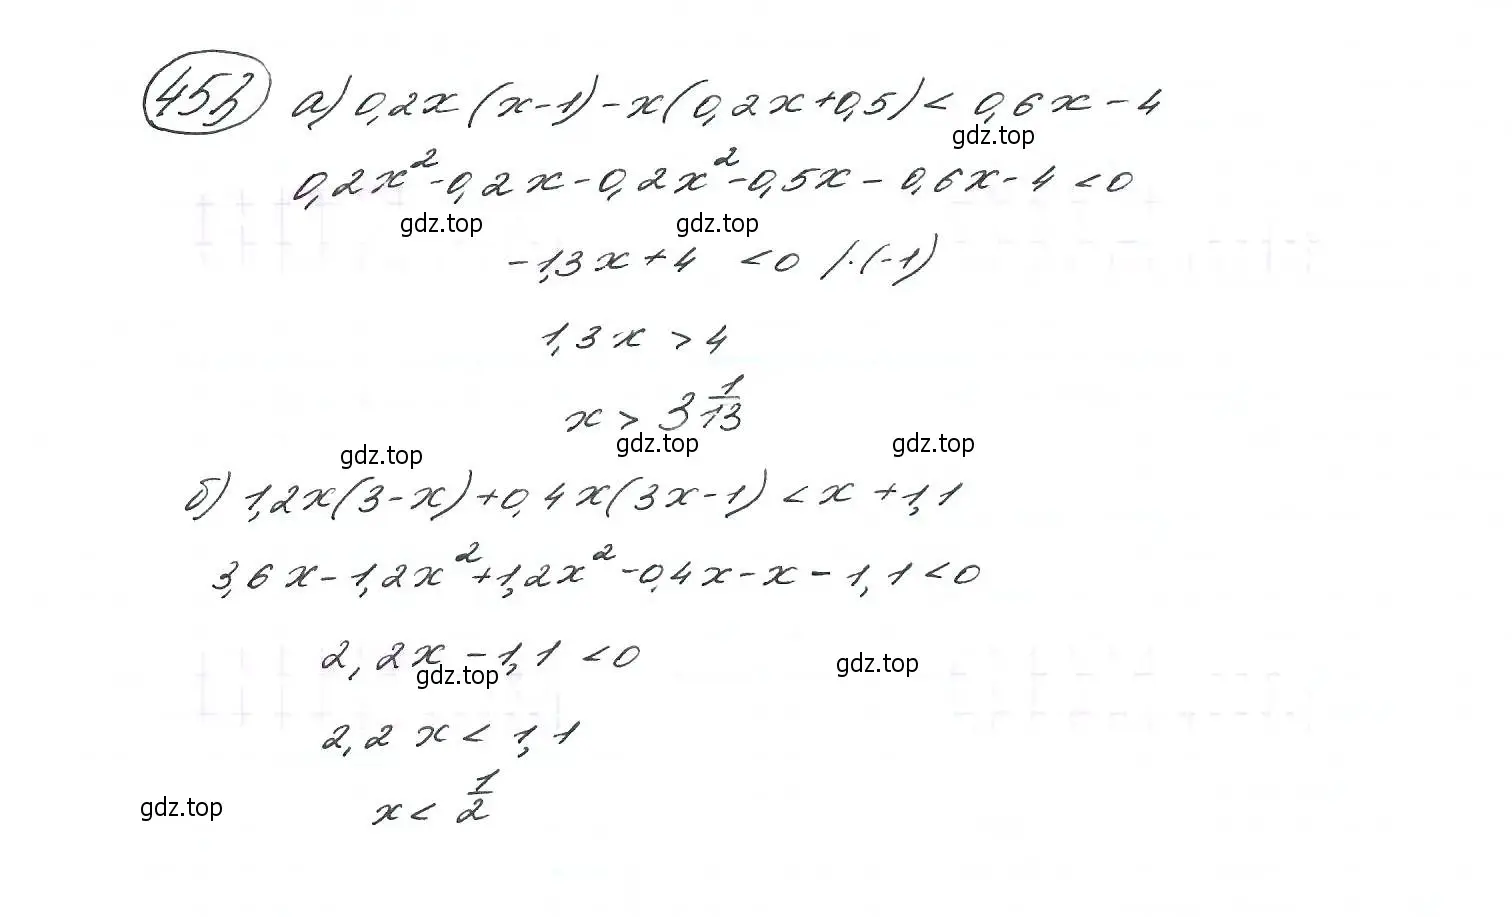 453 а) 0,2x(x-1)-x(0,2x+0,5)< 0,6x-4
gdz.top
0,2x²-0,2x-0,2x²-0,5x-0,6x-4<0
gdz.top gdz.top
-1,3x+4 <0 /·(-1)
1,3x >4
x > 3 1/13
gdz.top gdz.top gdz.top
б) 1,2x(3-x)+0,4x(3x-1)<x+1,1
3,6x-1,2x²+1,2x²-0,4x-x-1,1<0
2,2x-1,1<0
gdz.top gdz.top
2,2x<1,1
gdz.top x< 1/2